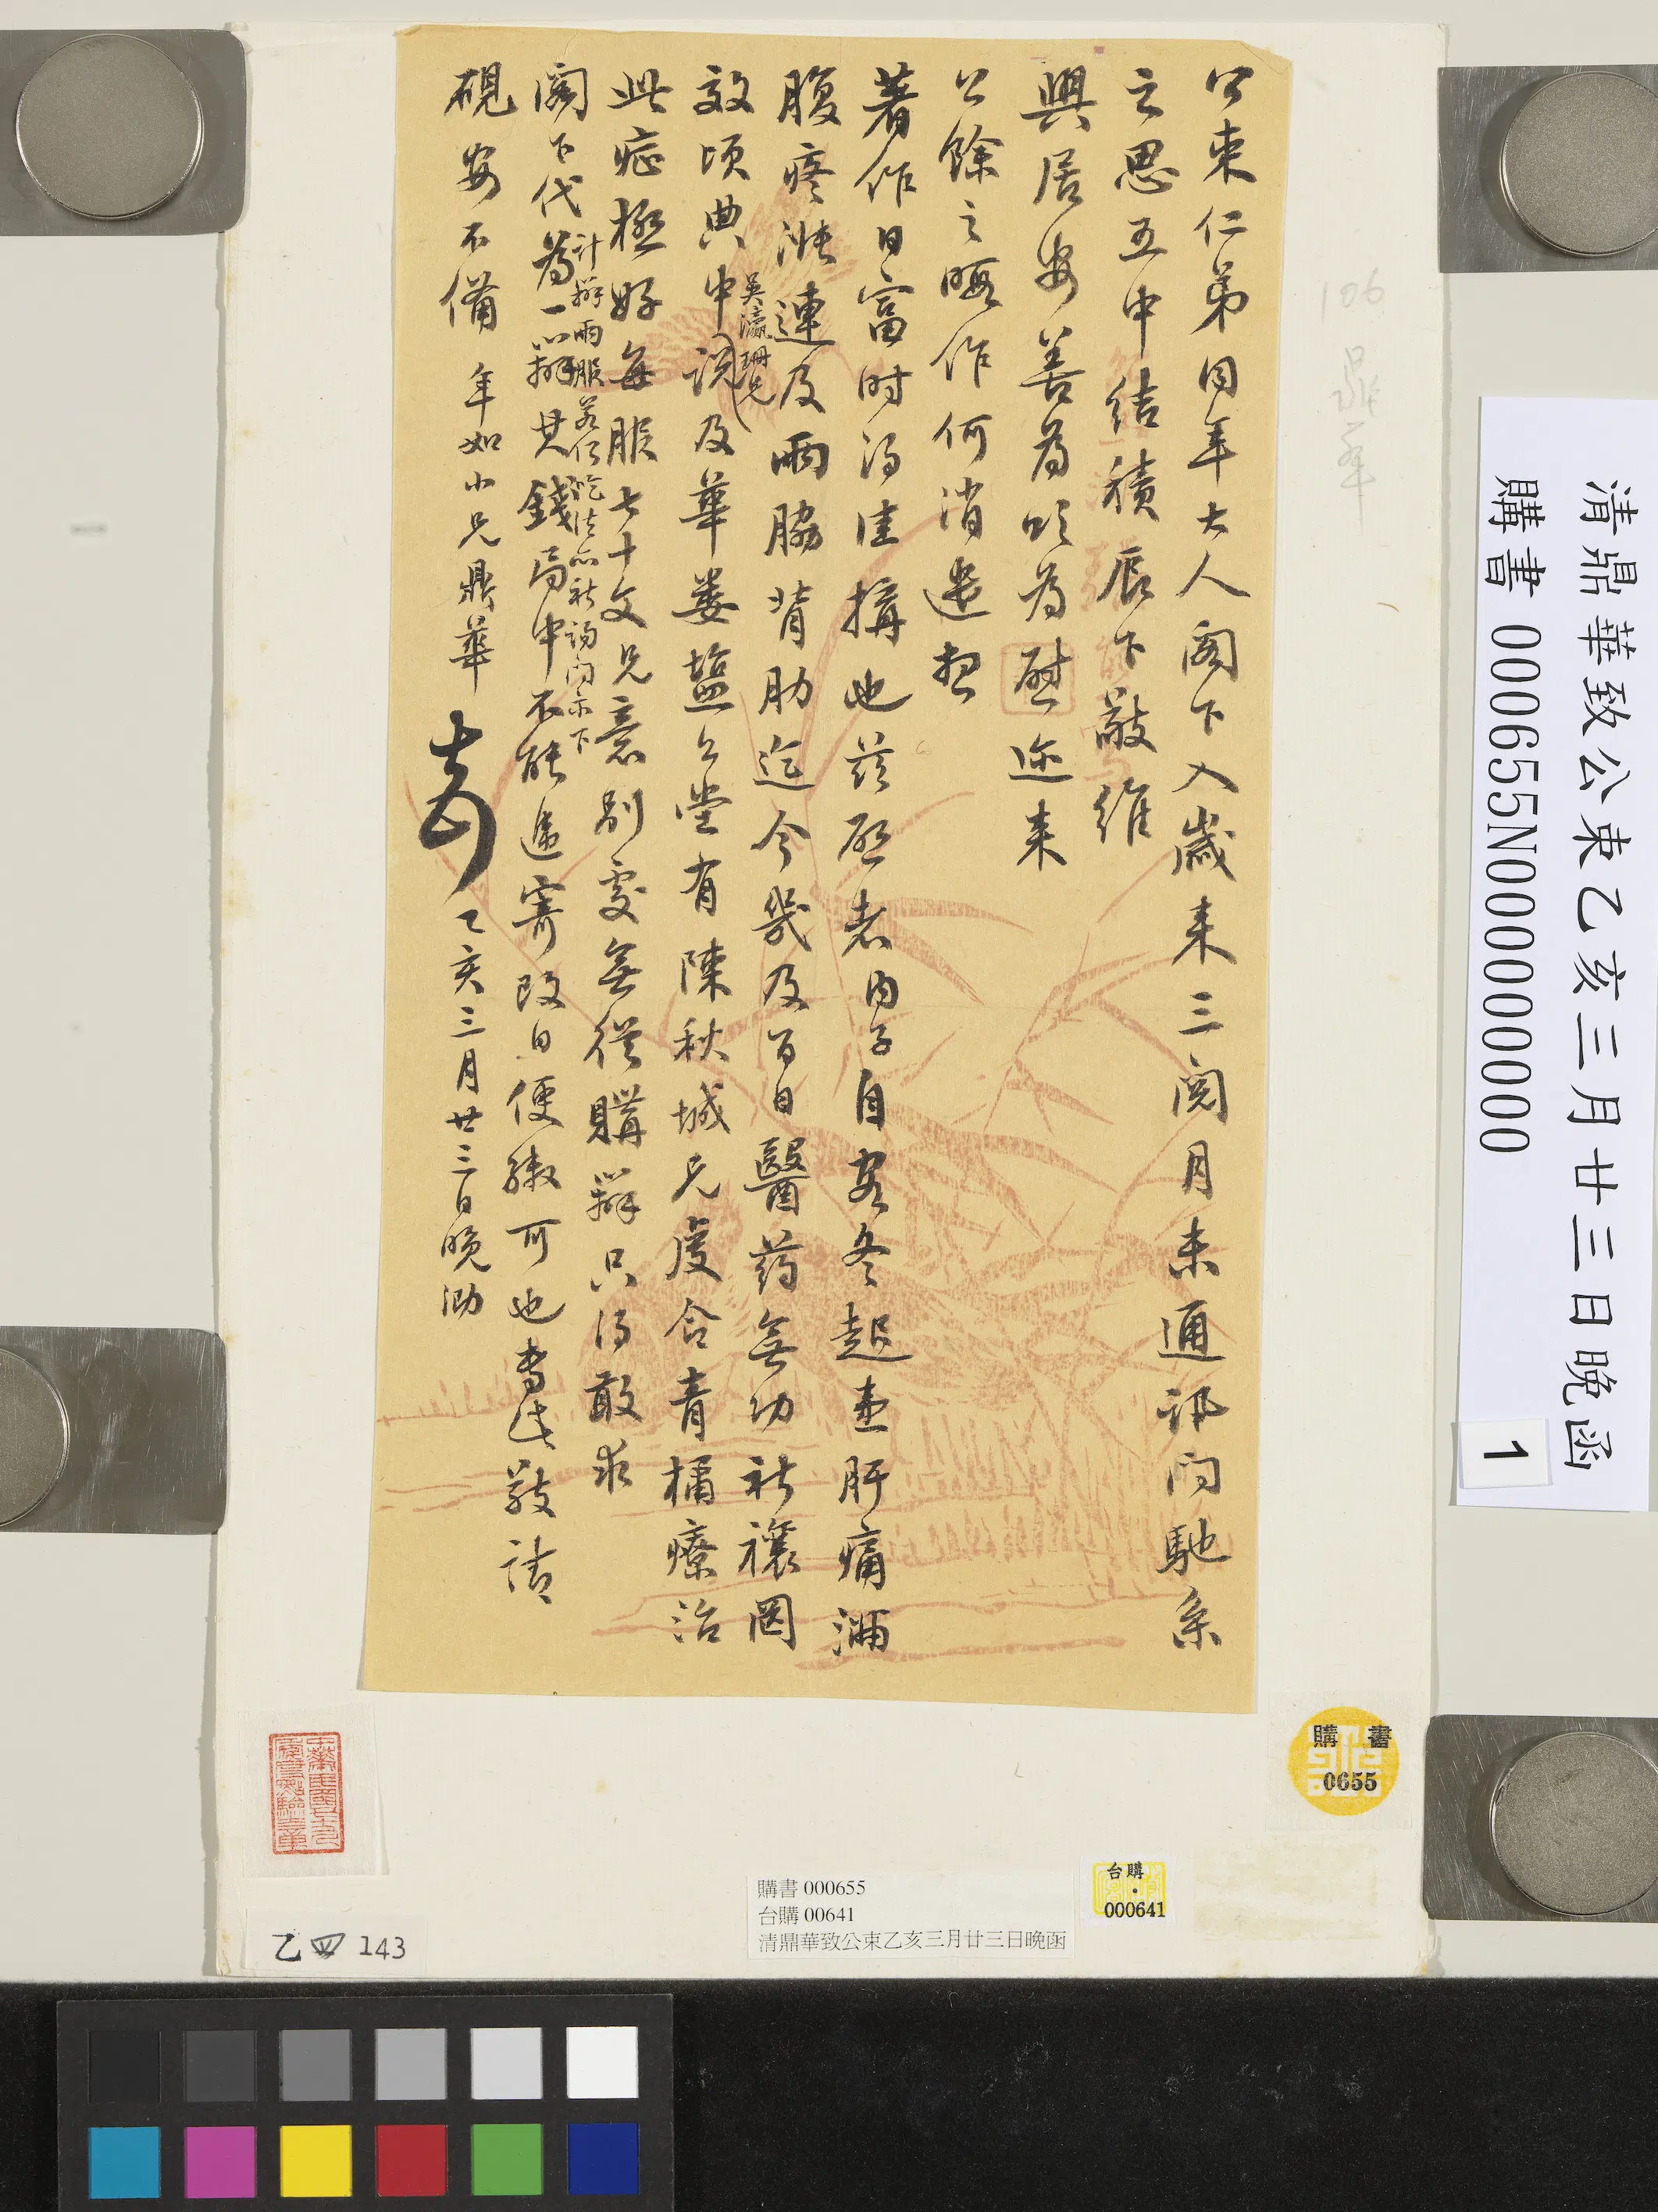 公束仁弟同年大人閣下入歲來三閱月未通訊問馳系
之思五中結積辰下敬維
興居安善為頌為慰邇來
公餘之暇作何消遣想
著作日富時得佳搆也茲啟者內子自客冬起患肝痛滿
腹疼漲連及兩脇背肋迄今幾及百日醫药無功祈禳罔
效頃典中談及華婁鹽公堂有陳秋城兄處合青橘療治
吳瀛珊兄
此症極好每服七十文兄意別處無從購辦只得敢求
閣下代為一辦其錢局中不能遞寄改日便繳可也專此敬請
計辦兩服若何吃法亦祈詢問示下
硯安不備 年如小兄鼎華 乙亥三月廿三日晚泐
106
鼎華
清鼎華致公束乙亥三月廿三日晚函
購書 000655N000000000
1
購書
0655
購書 000655
台購 00641
清鼎華致公束乙亥三月廿三日晚函
台購
000641
乙四 143